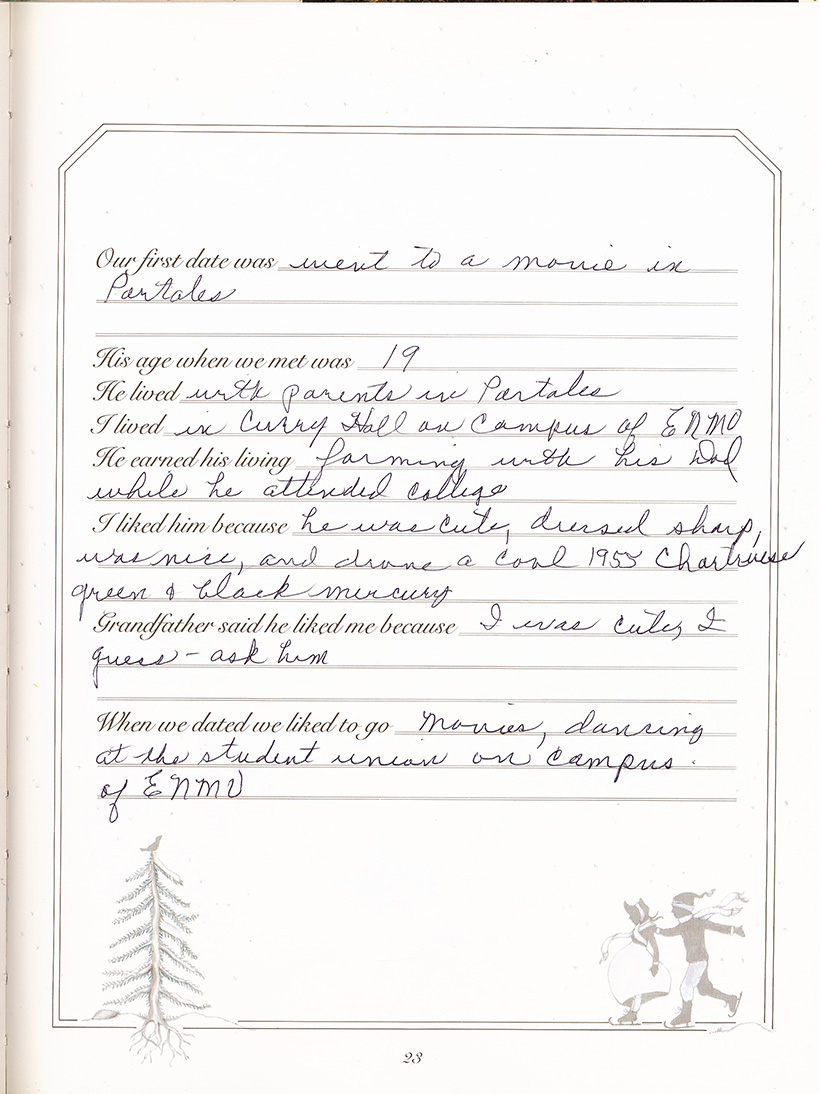 Our first date was went to a movie in
Portales
His age when we met was 19
He lived with parents in Portales
I lived in Curry Hall on Campus of ENMU
He earned his living farming with his Dad
while he attended college
I liked him because he was cute, dressed sharp,
was nice, and drove a cool 1955 Chartruese
green & black mercury
Grandfather said he liked me because I was cute, I
guess - ask him
When we dated we liked to go Movies, dancing
at the student union on campus.
of ENMU
23